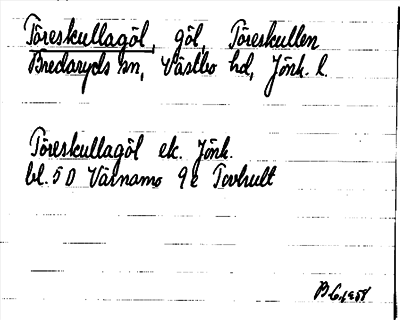 Töreskullagöl, göl, Töreskullen
Bredaryds sn, Västbo hd, Jönk. l.
Töreskullagöl ek. Jönk.
bl. 5 D Värnamo 9 e Tovhult